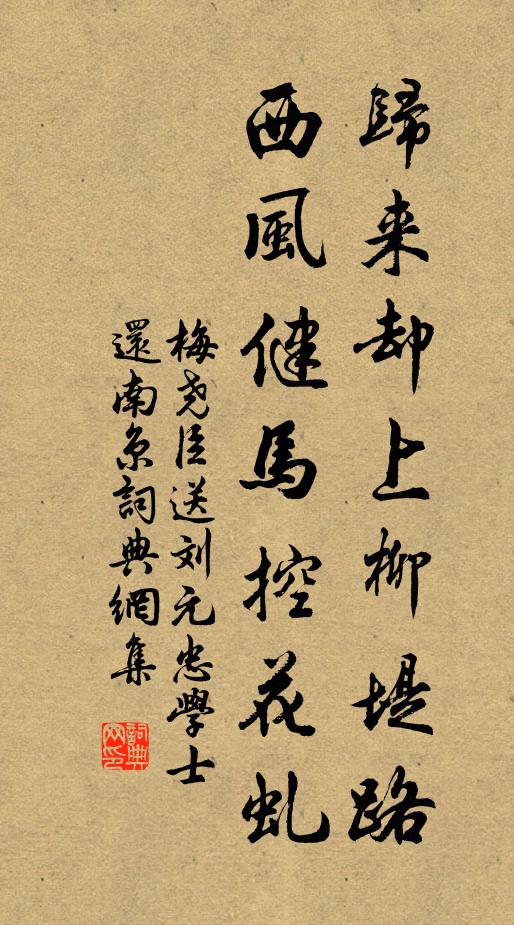 歸来却上柳堤路
西風健馬控花虬
梅尧臣送刘元忠學士
還南京詞典網集
詞典網印